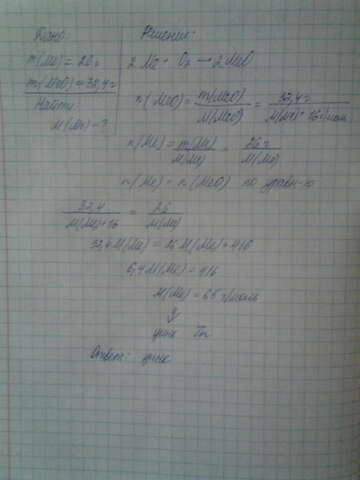 Дано:
m(Me) = 26 г
m(MeO) = 32,4 г
Найти:
M(Me) - ?
Решение:
2 Me + O₂ → 2 MeO
n(MeO) = m(MeO)/M(MeO) = 32,4 г/M(Me) + 16 г/моль
n(Me) = m(Me)/M(Me) = 26 г/M(Me)
n(Me) = n(MeO) по уравн-ю
32,4/M(Me)+16 = 26/M(Me)
32,4 M(Me) = 26 M(Me) + 416
6,4 M(Me) = 416
M(Me) = 65 г/моль
цинк Zn
Ответ: цинк